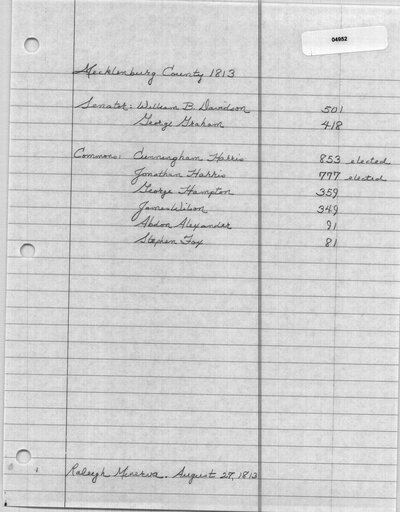 04952
Mecklenburg County 1813
Senator: William B. Davidson 501
George Graham 418
Commons: Cunningham Harris 853 elected
Jonathan Harris 777 elected
George Hampton 359
James Wilson 349
Abdon Alexander 91
Stephen Fox 81
Raleigh Minerva. August 27, 1813